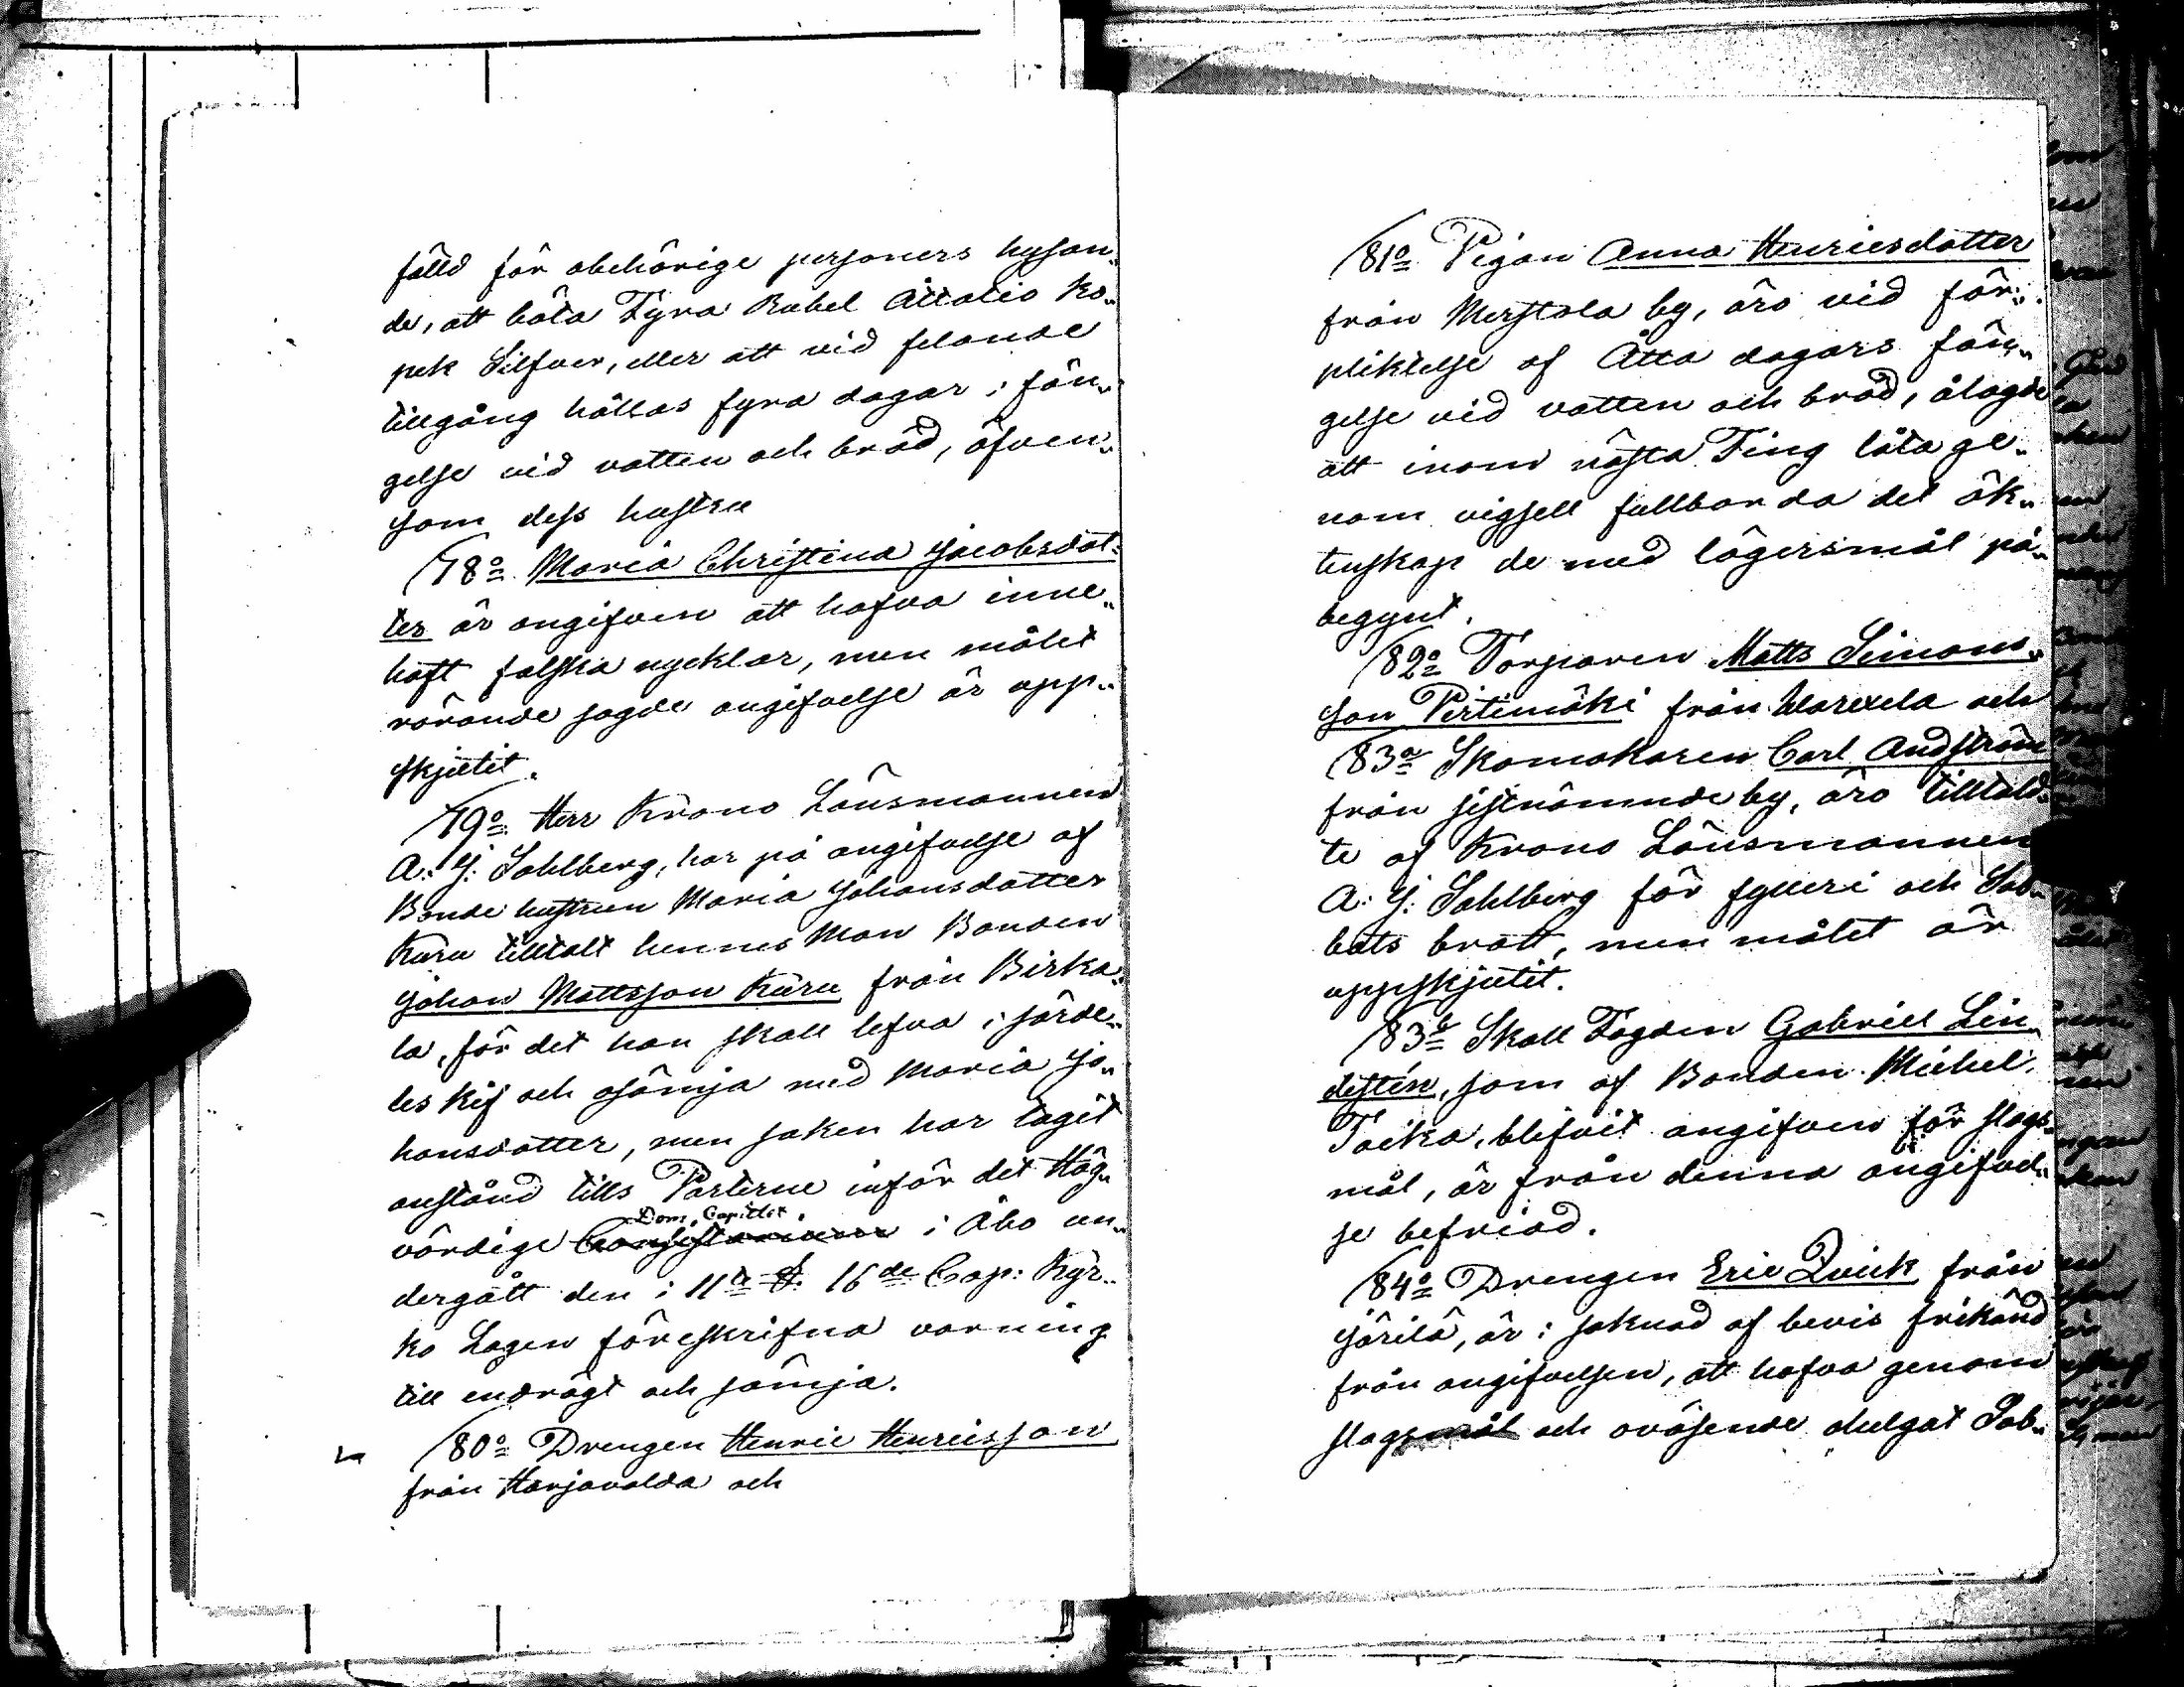 fälld för obehörige personers hysan„
de, att böta Fyra Rubel Åttatio Ko„
pek Silfver, eller att vid felande
tillgång hållas fyra dagar i fän„
gelse vid vatten och bröd, äfven„
som dess hustru
78o Maria Christina Jacobsdot„
ter är angifven att hafva inne„
haft falska nycklar, men målet
rörande sagde angifvelse är upp„
skjutit.
79o Herr Krono Länsmannen
A: J: Sahlberg, har på angifvelse af
Bonde hustrun Maria Johansdotter
Kuru tilltalt hennes Man Bonden
Johan Mattsson Kuru från Birka„
la, för det han skall lefva i särde„
les kif och osämja med Maria Jo„
hansdotter, men saken har tagit
anstånd tills Parterne inför det Hög„
Dom. Capitlet.
vördige Consistorium i Åbo un„
dergått den i 11te §. 16de Cap: Kyr„
ko Lagen föreskrifna varning
till endrägt och sämja.
80o Drengen Henric Henricsson
från Harjavalda och
81o Pigan Anna Henricsdotter
från Merstola by, äro vid för„
pliktelse af Åtta dagars fän„
gelse vid vatten och bröd, ålagde
att inom nästa Ting låta ge„
nom vigsell fullborda det äk„
tenskap de med lägersmål på„
begynt.
82o Torparen Matts Simons„
son Pirtimäki från Warexela och
83a Skomakaren Carl Andström
från sistnämnde by, äro tilltald„
te af Krono Länsmannen
A: J: Sahlberg för fylleri och Sab„
bats brott, men målet är
uppskjutit.
83b Skall Fogden Gabriel Lin
destén, som af Bonden Michel
Toika, blifvit angifven för slags„
mål, är från denna angifvel„
se befriad.
84o Drengen Eric Qvick från
Järilä, är i saknad af bevis frikänd
från angifvelsen, att hafva genom
slagsmål och oväsende ohelgat Sab„